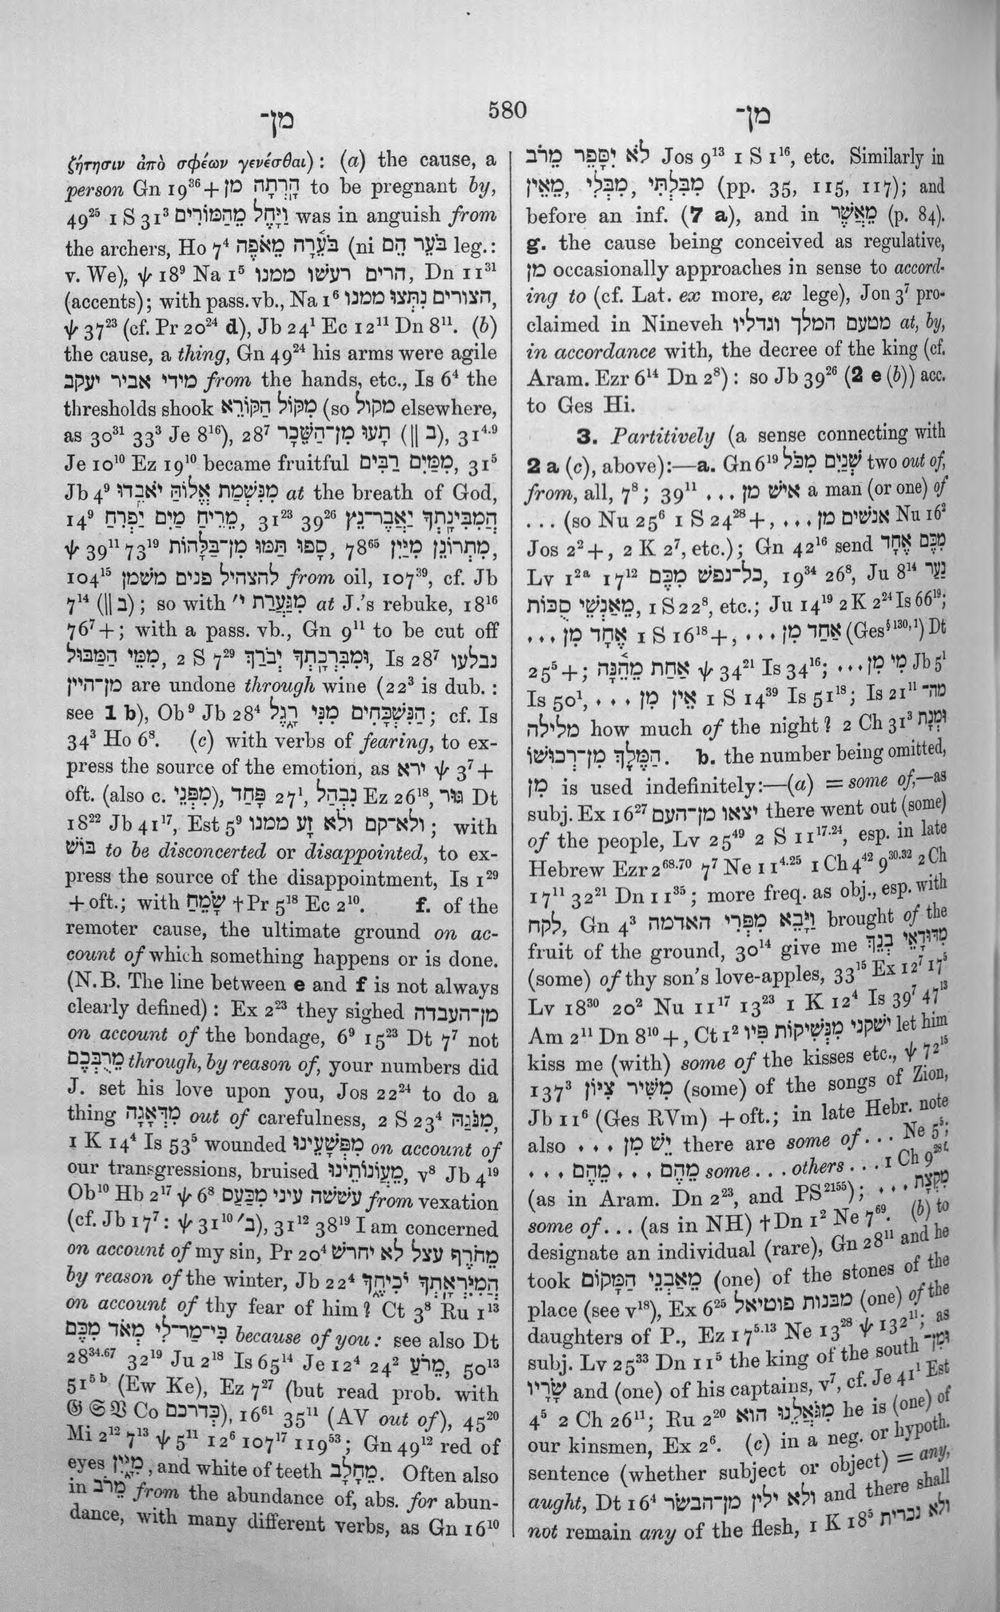 מִן־
580
מִן־
ζήτησιν ἀπὸ σφέων γενέσθαι): (a) the cause, a
person Gn 19³⁶+ הָרְתָה מִן to be pregnant by,
49²⁵ 1 S 31³ וַיָּ֫חֶל מֵהַמּוֹרִים was in anguish from
the archers, Ho 7⁴ בֹּעֵרָה מֵאֹפֶה (ni בֹּעֵר הֵם leg.:
v. We), ψ 18⁹ Na 1⁵ הרים רעשׁו ממנו, Dn 11³¹
(accents); with pass. vb., Na 1⁶ הצורים נִתְּצוּ ממנו,
ψ 37²³ (cf. Pr 20²⁴ d), Jb 24¹ Ec 12¹¹ Dn 8¹¹. (b)
the cause, a thing, Gn 49²⁴ his arms were agile
מידי אביר יעקב from the hands, etc., Is 6⁴ the
thresholds shook מִקּוֹל הַקּוֹרֵא (so מקול elsewhere,
as 30³¹ 33³ Je 8¹⁶), 28⁷ תָּעוּ מִן־הַשֵּׁכָר (‖ ב), 31⁴·⁹
Je 10¹⁰ Ez 19¹⁰ became fruitful מִמַּיִם רַבִּים, 31⁵
Jb 4⁹ מִנִּשְׁמַת אֱלוֹהַּ יֹאבֵדוּ at the breath of God,
14⁹ מֵרֵיחַ מַיִם יַפְרִחַ, 31²³ 39²⁶ הֲמִבִּינָתְךָ יַאֲבֶר־נֵץ
ψ 39¹¹ 73¹⁹ סָפוּ תַמּוּ מִן־בַּלָּהוֹת, 78⁶⁵ מִתְרוֹנֵן מִיָּיִן,
104¹⁵ להצהיל פנים משׁמן from oil, 107³⁹, cf. Jb
7¹⁴ (‖ ב); so with מִגַּעֲרַת י״ at J.'s rebuke, 18¹⁶
76⁷+; with a pass. vb., Gn 9¹¹ to be cut off
מִמֵּי הַמַּבּוּל, 2 S 7²⁹ וּמִבִּרְכָתְךָ יְבֹרַךְ, Is 28⁷ נבלעו
מן־היין are undone through wine (22³ is dub.:
see 1 b), Ob⁹ Jb 28⁴ הַנִּשְׁכָּחִים מִנִּי רָ֑גֶל; cf. Is
34³ Ho 6⁸. (c) with verbs of fearing, to ex-
press the source of the emotion, as ירא ψ 3⁷+
oft. (also c. מִפְּנֵי), פָּחַד 27¹, נִבְהַל Ez 26¹⁸, גּוּר Dt
18²² Jb 41¹⁷, Est 5⁹ ולא־קם ולא זָע ממנו; with
בּוֹשׁ to be disconcerted or disappointed, to ex-
press the source of the disappointment, Is 1²⁹
+oft.; with שָׂמֵחַ †Pr 5¹⁸ Ec 2¹⁰. f. of the
remoter cause, the ultimate ground on ac-
count of which something happens or is done.
(N.B. The line between e and f is not always
clearly defined): Ex 2²³ they sighed מן־העבדה
on account of the bondage, 6⁹ 15²³ Dt 7⁷ not
מֵרֻבְּכֶם through, by reason of, your numbers did
J. set his love upon you, Jos 22²⁴ to do a
thing מִדְּאָגָה out of carefulness, 2 S 23⁴ מִנֹּגַהּ,
1 K 14⁴ Is 53⁵ wounded מִפְּשָׁעֵינוּ on account of
our transgressions, bruised מֵעֲוֹנוֹתֵינוּ, v⁸ Jb 4¹⁹
Ob¹⁰ Hb 2¹⁷ ψ 6⁸ עשׁשׁה עיני מִכַּעַם from vexation
(cf. Jb 17⁷: ψ 31¹⁰ ב׳), 31¹² 38¹⁹ I am concerned
on account of my sin, Pr 20⁴ מֵחֹרֶף עצל לא יחרשׁ
by reason of the winter, Jb 22⁴ הֲמִיִּרְאָתְךָ יֹכִיחֶךָ
on account of thy fear of him? Ct 3⁸ Ru 1¹³
כִּי־מַר־לִי מְאֹד מִכֶּם because of you: see also Dt
28³⁴·⁶⁷ 32¹⁹ Ju 2¹⁸ Is 65¹⁴ Je 12⁴ 24² מֵרֹעַ, 50¹³
51⁵ᵇ (Ew Ke), Ez 7²⁷ (but read prob. with
𝔊 𝔖 𝔙 Co כְּדרכם), 16⁶¹ 35¹¹ (AV out of), 45²⁰
Mi 2¹² 7¹³ ψ 5¹¹ 12⁶ 107¹⁷ 119⁵³; Gn 49¹² red of
eyes מִיַּיִן, and white of teeth מֵחָלָב. Often also
in מֵרֹב from the abundance of, abs. for abun-
dance, with many different verbs, as Gn 16¹⁰
לֹא יִסָּפֵר מֵרֹב Jos 9¹³ 1 S 1¹⁶, etc. Similarly in
מֵאֵין, מִבְּלִי, מִבִּלְתִּי (pp. 35, 115, 117); and
before an inf. (7 a), and in מֵאֲשֶׁר (p. 84).
g. the cause being conceived as regulative,
מִן occasionally approaches in sense to accord-
ing to (cf. Lat. ex more, ex lege), Jon 3⁷ pro-
claimed in Nineveh מטעם המלך וגדליו at, by,
in accordance with, the decree of the king (cf.
Aram. Ezr 6¹⁴ Dn 2⁸): so Jb 39²⁶ (2 e (b)) acc.
to Ges Hi.
3. Partitively (a sense connecting with
2 a (c), above):—a. Gn 6¹⁹ שְׁנַיִם מִכֹּל two out of,
from, all, 7⁸; 39¹¹ ... אִישׁ מִן a man (or one) of
... (so Nu 25⁶ 1 S 24²⁸+, ... אנשׁים מִן Nu 16²
Jos 2²+, 2 K 2⁷, etc.); Gn 42¹⁶ send מִכֶּם אֶחָד
Lv 1²ᵃ 17¹² כל־נפשׁ מִכֶּם, 19³⁴ 26⁸, Ju 8¹⁴ נַעַר
מֵאַנְשֵׁי סֻכּוֹת, 1 S 22⁸, etc.; Ju 14¹⁹ 2 K 2²⁴ Is 66¹⁹;
... אֶחָד מִן 1 S 16¹⁸+, ... אַחַד מִן (Ges§ ¹³⁰·¹) Dt
25⁵+; אַחַת מֵהֵנָּה ψ 34²¹ Is 34¹⁶; ... מִי מִן Jb 5¹
Is 50¹, ... אֵין מִן 1 S 14³⁹ Is 51¹⁸; Is 21¹¹ מה־
מלילה how much of the night? 2 Ch 31³ וּמְנָת
הַמֶּלֶךְ מִן־רְכוּשׁוֹ. b. the number being omitted,
מִן is used indefinitely:—(a) = some of,—as
subj. Ex 16²⁷ יצאו מן־העם there went out (some)
of the people, Lv 25⁴⁹ 2 S 11¹⁷·²⁴, esp. in late
Hebrew Ezr 2⁶⁸·⁷⁰ 7⁷ Ne 11⁴·²⁵ 1 Ch 4⁴² 9³⁰·³² 2 Ch
17¹¹ 32²¹ Dn 11³⁵; more freq. as obj., esp. with
לקח, Gn 4³ וַיָּבֵא מִפְּרִי האדמה brought of the
fruit of the ground, 30¹⁴ give me מִדּוּדָאֵי בְּנֵךְ
(some) of thy son's love-apples, 33¹⁵ Ex 12⁷ 17⁵
Lv 18³⁰ 20² Nu 11¹⁷ 13²³ 1 K 12⁴ Is 39⁷ 47¹³
Am 2¹¹ Dn 8¹⁰+, Ct 1² ישׁקני מִנְּשִׁיקוֹת פִּיו let him
kiss me (with) some of the kisses etc., ψ 72¹⁵
137³ מִשִּׁיר צִיּוֹן (some) of the songs of Zion,
Jb 11⁶ (Ges RVm) +oft.; in late Hebr. note
also ... יֵשׁ מִן there are some of ... Ne 5⁵;
... מֵהֶם ... מֵהֶם some ... others ... 1 Ch 9²⁸ᶠ·
(as in Aram. Dn 2²³, and PS²¹⁵⁵); ... מִקְצָת
some of ... (as in NH) †Dn 1² Ne 7⁶⁹. (b) to
designate an individual (rare), Gn 28¹¹ and he
took מֵאַבְנֵי הַמָּקוֹם (one) of the stones of the
place (see v¹⁸), Ex 6²⁵ מבנות פוטיאל (one) of the
daughters of P., Ez 17⁵·¹³ Ne 13²⁸ ψ 132¹¹; as
subj. Lv 25³³ Dn 11⁵ the king of the south וּמִן־
שָׂרָיו and (one) of his captains, v⁷, cf. Je 41¹ Est
4⁵ 2 Ch 26¹¹; Ru 2²⁰ מִגֹּאֲלֵנוּ הוא he is (one) of
our kinsmen, Ex 2⁶. (c) in a neg. or hypoth.
sentence (whether subject or object) = any,
aught, Dt 16⁴ ולא ילין מן־הבשׂר and there shall
not remain any of the flesh, 1 K 18⁵ ולא נכרית